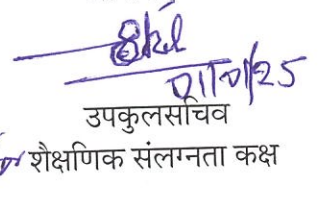 01/01/25
उपकुलसचिव
शैक्षणिक संलग्नता कक्ष